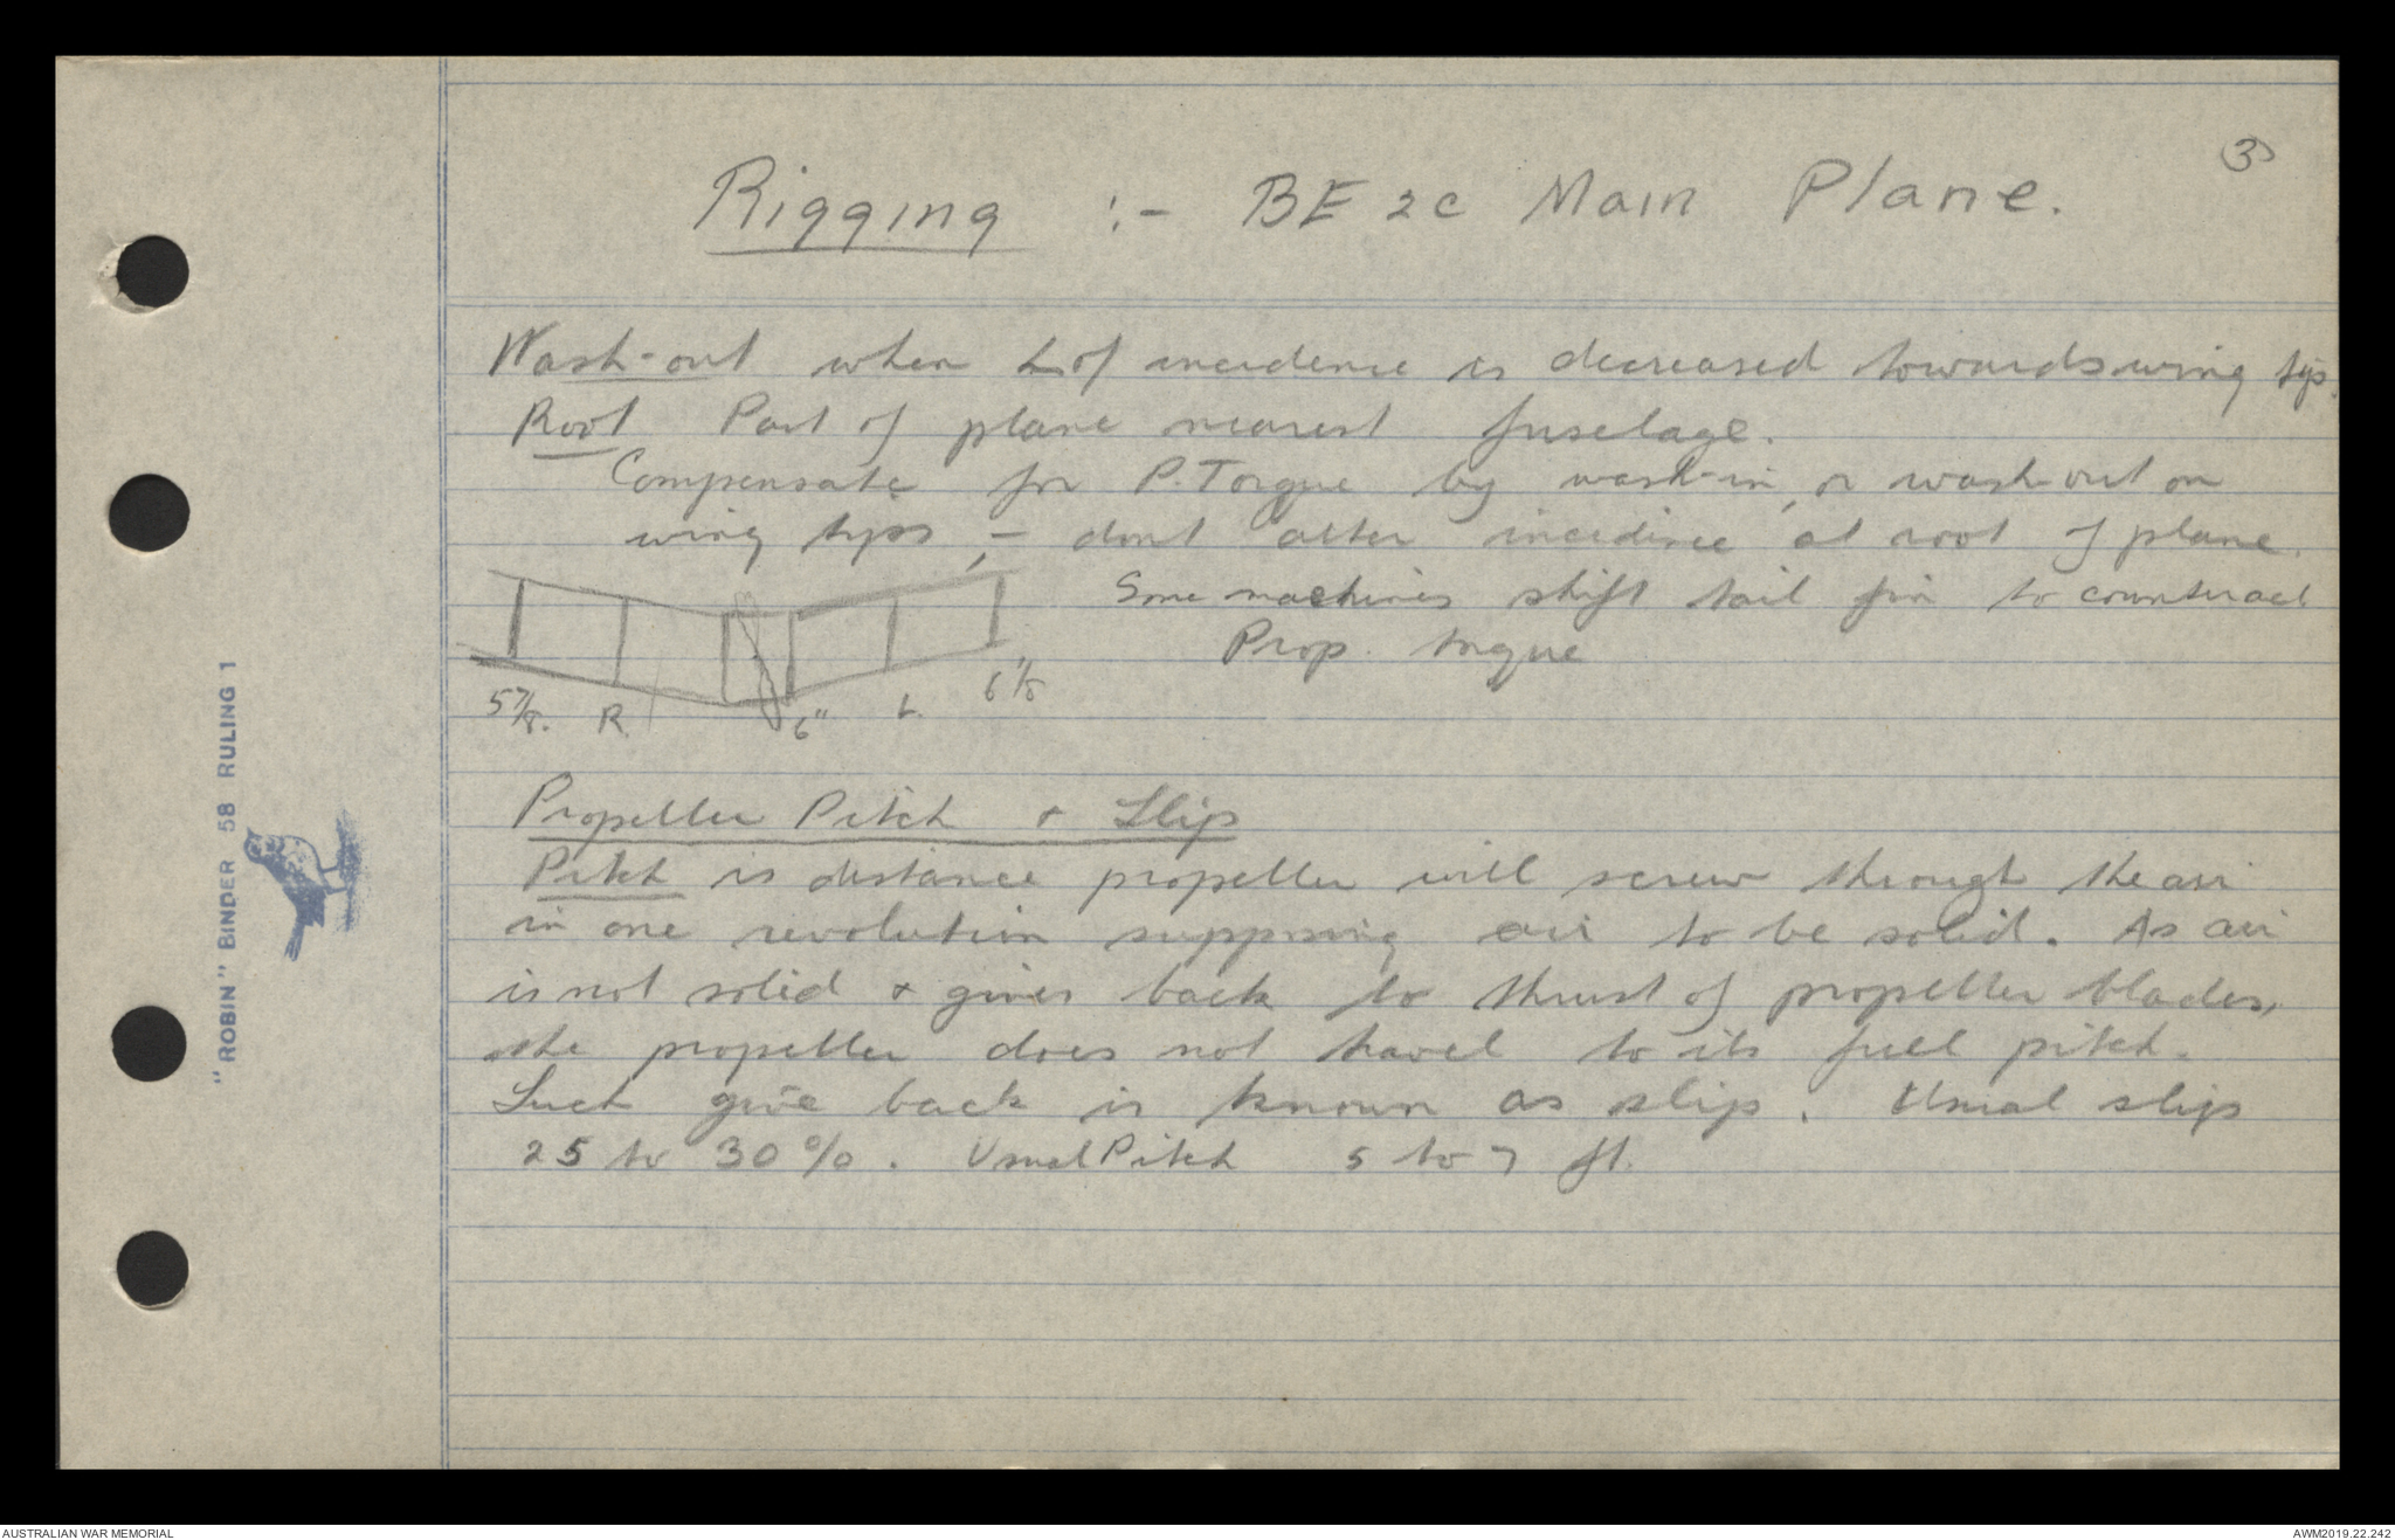 3
Rigging :- BE 2c Main Plane.
Wash-out when ∠ of incidence is decreased towards wing tips.
Root Part of plane nearest fuselage.
Compensate for P. Torque by wash-in, or wash-out on
wing tips, - dont alter incidence at root of plane.
Some machines shift tail fin to counteract
Prop. torque
5 7/8. R. 6" L. 6 1/8
Propeller Pitch & Slip
Pitch is distance propeller will screw through the air
in one revolution supposing air to be solid. As air
is not solid & gives back to thrust of propeller blades,
the propeller does not travel to its full pitch.
Such give back is known as slip. Usual slip
25 to 30%. Usual Pitch 5 to 7 ft.
"ROBIN" BINDER 58 RULING 1
AUSTRALIAN WAR MEMORIAL
AWM2019.22.242